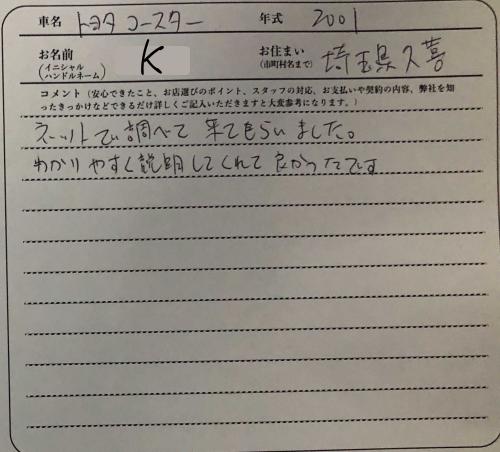 車名 トヨタ コースター 年式 2001
お名前 (イニシャル ハンドルネーム) K お住まい (市町村名まで) 埼玉県久喜
コメント(安心できたこと、お店選びのポイント、スタッフの対応、お支払いや契約の内容、弊社を知
ったきっかけなどできるだけ詳しくご記入いただきますと大変参考になります。)
ネットで調べて 来てもらいました。
わかりやすく説明してくれて良かったです